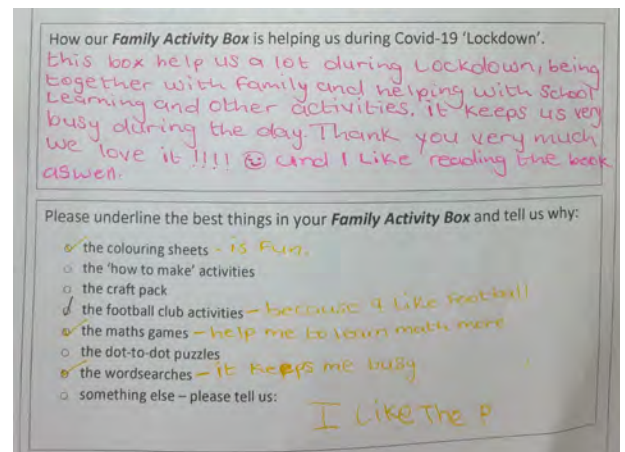 How our Family Activity Box is helping us during Covid-19 'Lockdown'.
this box help us a lot during Lockdown, being
together with family and helping with School
Learning and other activities. it keeps us very
busy during the day. Thank you very much
we love it !!!! and I Like reading the book
aswell.
Please underline the best things in your Family Activity Box and tell us why:
the colouring sheets - is Fun.
the 'how to make' activities
the craft pack
the football club activities - because I Like football
the maths games - help me to learn math more
the dot-to-dot puzzles
the wordsearches - it keeps me busy
something else – please tell us:
I Like The P